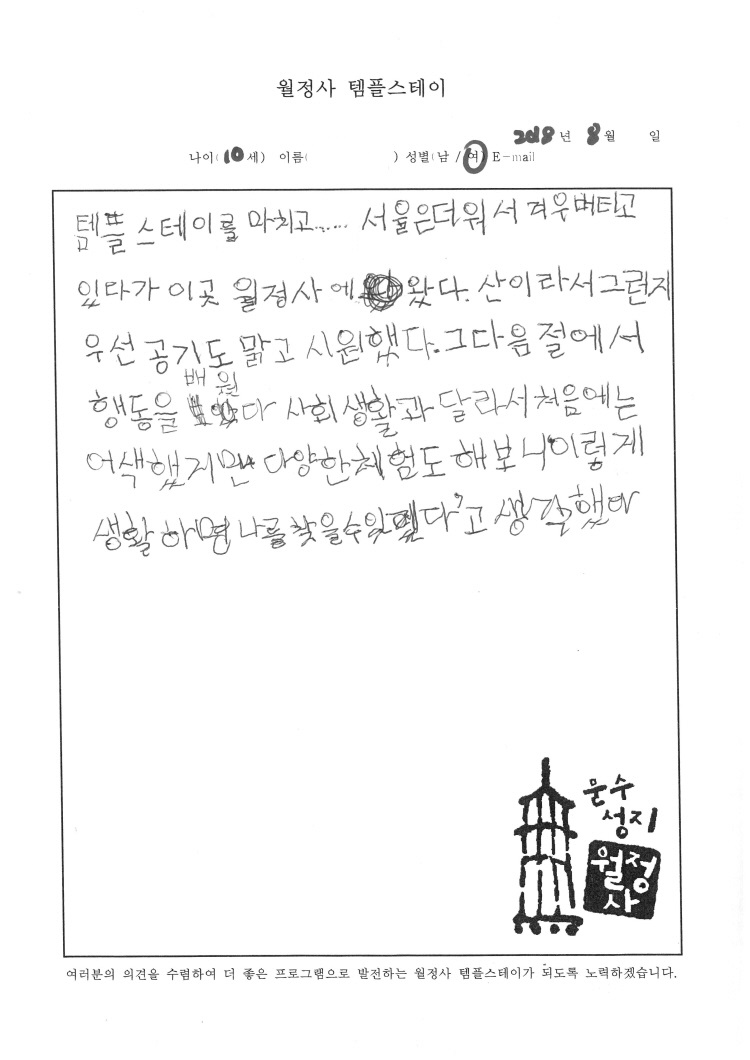 월정사 템플스테이
2018 년 8 월 일
나이( 10 세) 이름( ) 성별(남 / 여) E-mail
템플스테이를 마치고...... 서울은더워서 겨우버티고
있다가 이곳 월정사에 왔다. 산이라서그런지
우선 공기도 맑고 시원했다. 그다음 절에서
배웠
행동을 다 사회생활과 달라서처음에는
어색했지만 다양한체험도 해보니이렇게
생활하면 나를찾을수있겠다'고 생각했다
문수
성지
월정
사
여러분의 의견을 수렴하여 더 좋은 프로그램으로 발전하는 월정사 템플스테이가 되도록 노력하겠습니다.